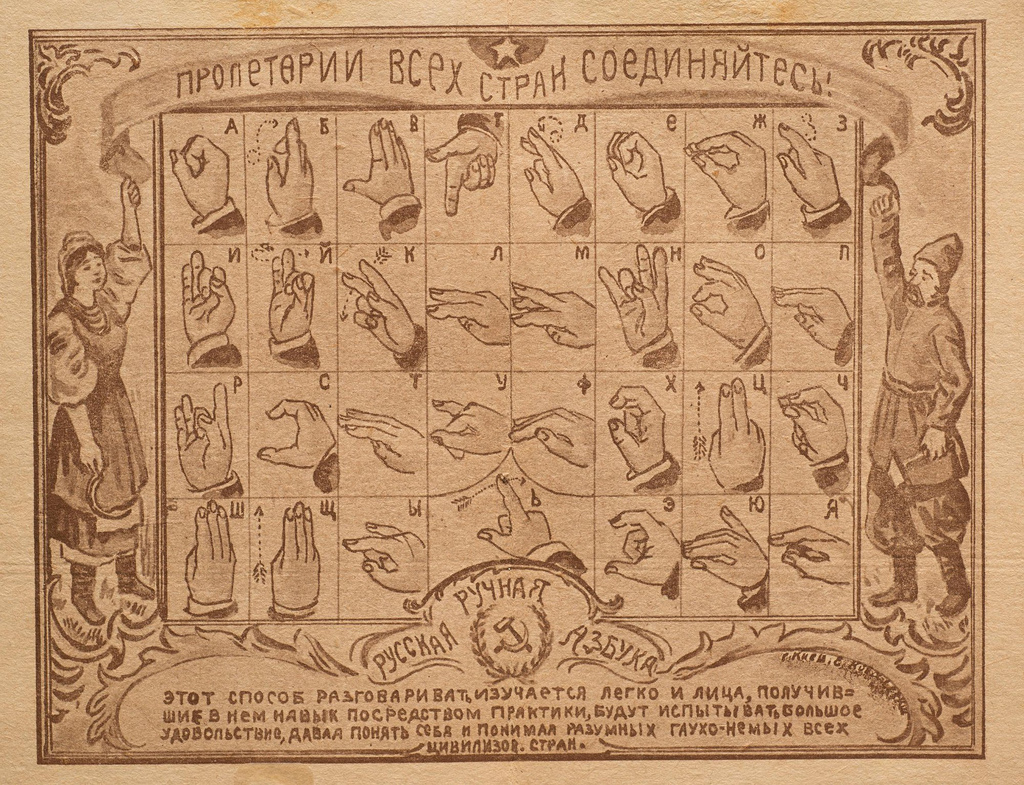 ПРОЛЕТЕРИИ ВСЕХ СТРАН СОЕДИНЯЙТЕСЬ!
А Б В Г Д Е Ж З
И Й К Л М Н О П
Р С Т У Ф Х Ц Ч
Ш Щ Ы Ь Э Ю Я
РУЧНАЯ
РУССКАЯ АЗБУКА
г. Киев, С.
ЭТОТ СПОСОБ РАЗГОВАРИВАТЬ, ИЗУЧАЕТСЯ ЛЕГКО И ЛИЦА, ПОЛУЧИВ=
ШИЕ В НЕМ НАВЫК ПОСРЕДСТВОМ ПРАКТИКИ, БУДУТ ИСПЫТЫВАТЬ БОЛЬШОЕ
УДОВОЛЬСТВИЕ, ДАВАЯ ПОНЯТЬ СЕБЯ И ПОНИМАЯ РАЗУМНЫХ ГЛУХО-НЕМЫХ ВСЕХ
ЦИВИЛИЗОВ. СТРАН.